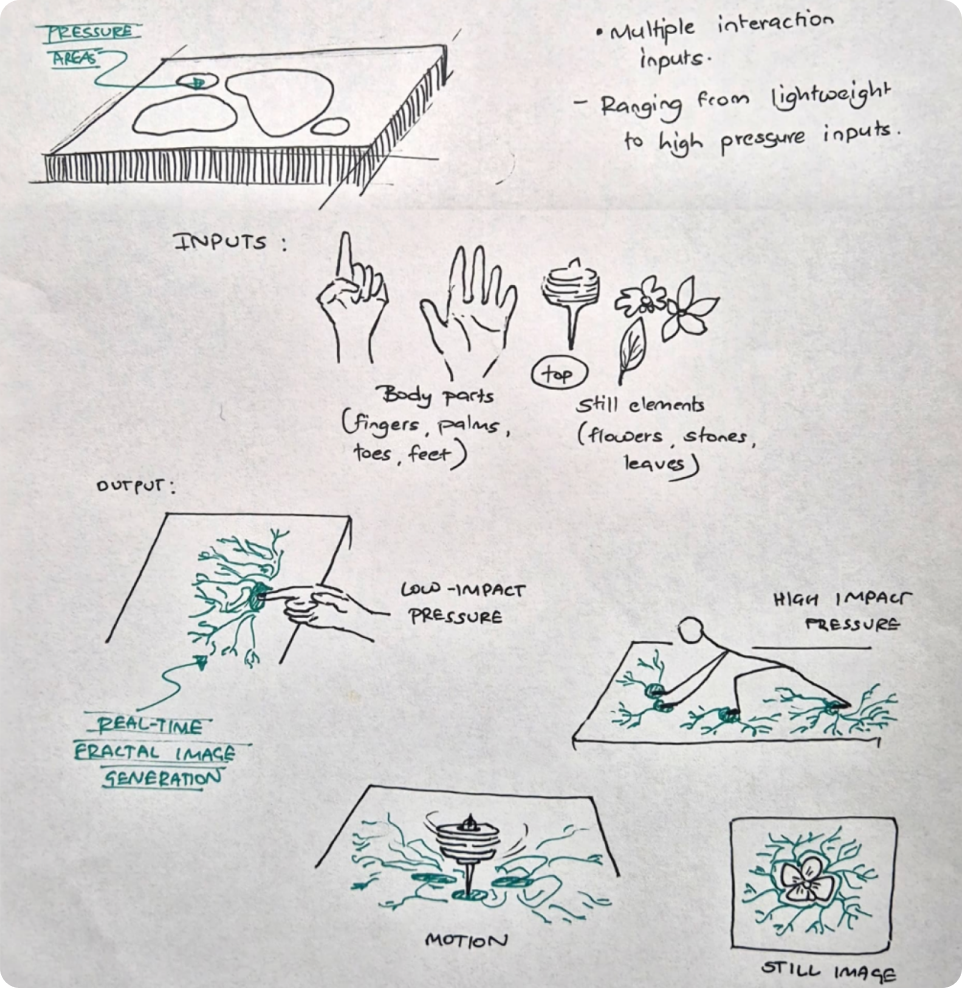 PRESSURE
AREAS
• Multiple interaction
inputs.
- Ranging from lightweight
to high pressure inputs.
INPUTS :
top
Body parts
(fingers, palms,
toes, feet)
Still elements
(flowers, stones,
leaves)
OUTPUT:
LOW-IMPACT
PRESSURE
HIGH IMPACT
PRESSURE
REAL-TIME
FRACTAL IMAGE
GENERATION
MOTION
STILL IMAGE